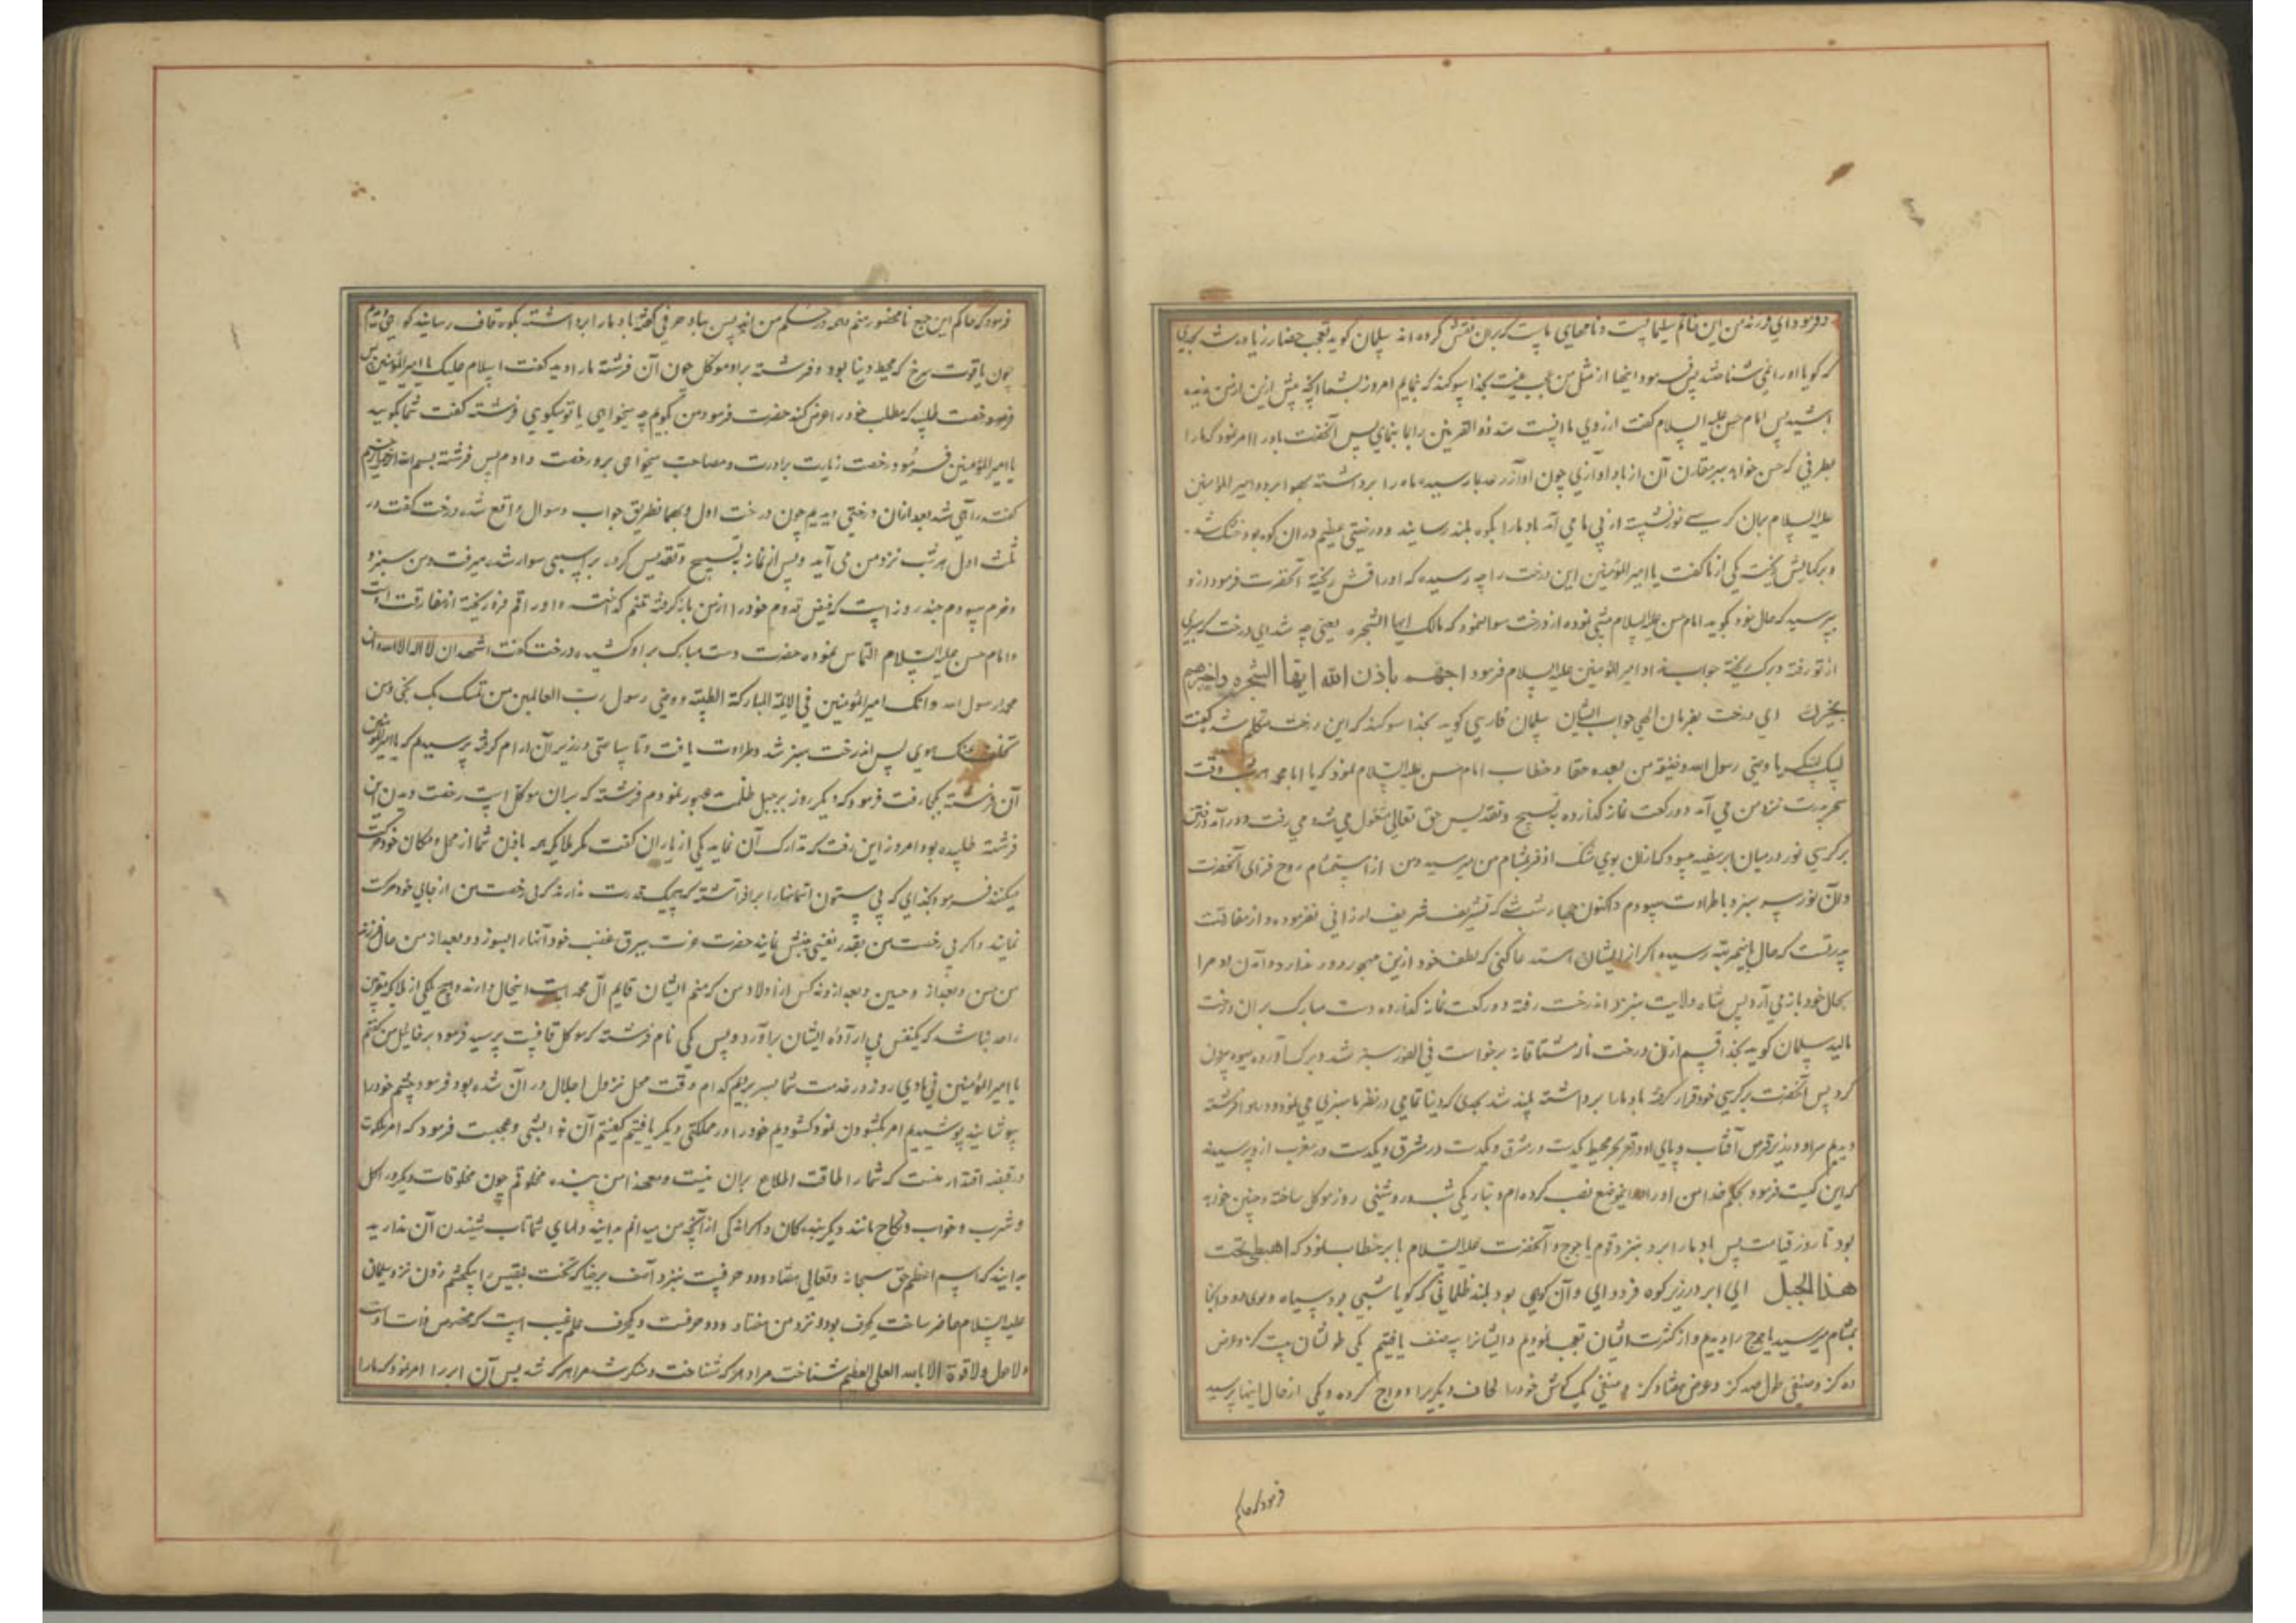 و فرمود این خاتم سلیمانست و نامهای ماست که بران نقش کرده اند سلمان کوید تعجب حضار زیاده شد بحدی
که کویا او را نمی شناختند پس فرمود اینها از مثل من عجب نیست بخدا سوکند که بنمایم امروز بشما انچه پیش ازین از من ندیده
باشید پس امام حسن علیه السلام کفت ارزوی ما اینست سد ذو القرنین را بما بنمای پس آنحضرت باد را امر نمود که ما را
علیه السلام بران کرسی نور نشسته از پی ما می آمد باد ما را بکوه بلند رسانید و درختی عظیم دران کوه بود خشک شده
و برکهایش ریخت یکی از ما کفت یا امیر المؤمنین این درخت را چه رسیده که اوراقش ریخته آنحضرت فرمود ازو
بپرسید که حال خود بکوید امام حسن علیه السلام پیش نموده از درخت سوال نمود که مالک ایها الشجره یعنی چه شد ای درخت که سبزی
از تو رفته و برک ریخته جواب نداد امیر المؤمنین علیه السلام فرمود اجیبهم باذن الله ایها الشجره و اخبرهم
بخبرك ای درخت بفرمان الهی جواب ایشان سلمان فارسی کوید بخدا سوکند که این درخت متکلم شد کفت
لبیک لبیک یا وصی رسول الله و خلیفه من بعده حقا و خطاب امام حسن علیه السلام نمود که یا ابا محمد هر شب وقت
سحر پدرت نزد من می آمد دو رکعت نماز کذارده بتسبیح و تقدیس حق تعالی مشغول می شد و می رفت و در آمد و رفتن
بر کرسی نور در میان ابر سفید میبود که ازان بوی مشک اذفر بمشام من میرسید و من از استشمام روح فزای آنحضرت
سبز و با طراوت میبودم و اکنون چهار شب است که تشریف شریف ارزانی نفرموده و از مفارقت
پدرتست که حال باینمرتبه رسیده اکر از ایشان استدعا کنی که لطف خود ازین مهجور دور ندارد و آمدن او مرا
بحال خود باز می آرد پس شاه ولایت بنزد اندرخت رفته دو رکعت نماز کذارده دست مبارک بران درخت
مالید سلمان کوید بخدا قسم ازان درخت ناله مشتاقانه برخواست فی الفور سبز شد و برک آورده میوه
کرد پس آنحضرت بر کرسی خود قرار کرفته باد ما را برداشته بلند شد بحدی که دنیا تمامی در نظر ما سپری می نمود و در هوا فرشته
دیدم سر او در زیر قرص آفتاب و پای او در قعر بحر محیط یکدست در مشرق و یکدست در مغرب ازو پرسیدند
که این کیست فرمود بحکم خدا من او را در اینموضع نصب کرده ام و بتاریکی شب و روشنی روز موکل ساخته و چنین خواهد
بود تا روز قیامت پس باد ما را برد بنزد قوم یاجوج و آنحضرت علیه السلام با ابر خطاب نمود که اهبط تحت
هذا الجبل ای ابر در زیر کوه فرود آی و آن کوهی بود بلند ظلمانی که کویا شبی بود سیاه و بوی دود ازان
بمشام میرسید یاجوج را دیدیم و از کثرت ایشان تعجب نمودیم و ایشانرا سه صنف یافتیم یکی طولشان بیست کز و عرض
ده کز و صنفی طول صد کز و عرض هفتاد کز و صنفی یک کوش خود را لحاف و دیکریرا دواج کرده و یکی از حال اینها پرسید
فرمود که حاکم
فرمود که حاکم این جمع نامحصور منم و همه در حکم من اند پس بباد حرفی کفته باد ما را برداشته بکوه قاف رسانید کوهی دیدم
چون یاقوت سرخ که محیط دنیا بود و فرشته براو موکل چون آن فرشته ما را دید کفت السلام علیک یا امیر المؤمنین پس
رخصت طلبید که مطلب خود را عرض کند حضرت فرمود من بگویم چه میخواهی یا تو میکوی فرشته کفت شما بکویید
یا امیر المؤمنین فرمود رخصت زیارت برادرت و مصاحبت میخواهی برو رخصت دادم پس فرشته بسم الله الرحمن الرحیم
کفته راهی شد بعد ازان درختی دیدیم چون درخت اول و بهمانطریق جواب و سوال واقع شد درخت کفت در
ثلث اول هر شب نزد من می آید و پس از نماز بتسبیح و تقدیس کرده بر اسبی سوار شده میرفت و من سبز و
خرم میبودم چند روز است که فیض قدوم خود را از من باز کرفته و اوراقم فرو ریخته از مفارقت اوست
و امام حسن علیه السلام التماس نموده حضرت دست مبارک بر او کشیده درخت کفت اشهد ان لا اله الا الله و ان
محمد رسول الله و انک امیر المؤمنین فی الامة المبارکة الطیبة و وصی رسول رب العالمین من تمسک بک نجی و من
تخلف عنک هوی پس اندرخت سبز شد و طراوت یافت و تا ساعتی در زیر آن ارام کرفته پرسیدم که یا امیر المؤمنین
آن فرشته بکجا رفت فرمود که دیکر روز بر جبل ظلمت عبور نمودم فرشته که بران موکل است رخصت دیدن این
فرشته طلبیده بود امروز این رفت که تدارک آن نماید یکی از یاران کفت مکر ملایکه همه باذن شما از محل و مکان خود حرکت
میکنند فرمود بخدایی که بی ستون آسمانها را برافراشته که هیچیک قدرت ندارند که بی رخصت من از جای خود حرکت
نمایند و اکر بی رخصت من بقدر نفسی جنبش نمایند حضرت عزت ببرق غضب خود آنها را بسوزد و بعد از من حال فرزند
من حسن و بعد از و حسین و بعد از و نه کس از اولاد من که نهم ایشان قایم آل محمد است اینحال دارند و هیچ یکی از ملایکه مقربین
را حد نباشد که یکنفس بی اراده ایشان برآورد و پس یکی نام فرشته که موکل قافست پرسید فرمود برخائیل من کفتم
یا امیر المؤمنین روز در خدمت شما بسر بردیم کدام وقت محل نزول اجلال در آن شده بود فرمود چشم خود را
بپوشانید پوشیدیم امر بکشودن نمود کشودیم خود را در مملکتی دیکر یافتیم کفتیم آن فرمود که امر ملکوت
در قبضه اقتدار منست که شما را طاقت اطلاع بران نیست و معهذا من بنده مخلوقم چون مخلوقات دیکر در اکل
و شرب و خواب و نکاح مانند دیکر بندکان و اکر اندکی از آنچه من میدانم بدانید دلهای شما تاب شنیدن آن ندارید
بدانید که اسم اعظم حق سبحانه و تعالی هفتاد و دو حرفست بنزد آصف برخیا که تخت بلقیس را بیکچشم زدن نزد سلیمان
علیه السلام حاضر ساخت یکحرف بود و نزد من هفتاد و دو حرفست و یکحرف علم غیب است که مخصوص ذات اوست
و لا حول و لا قوة الا بالله العلی العظیم شناخت مرا هر که شناخت و منکر شد مرا هر که شد پس آن ابر را امر نمود که ما را